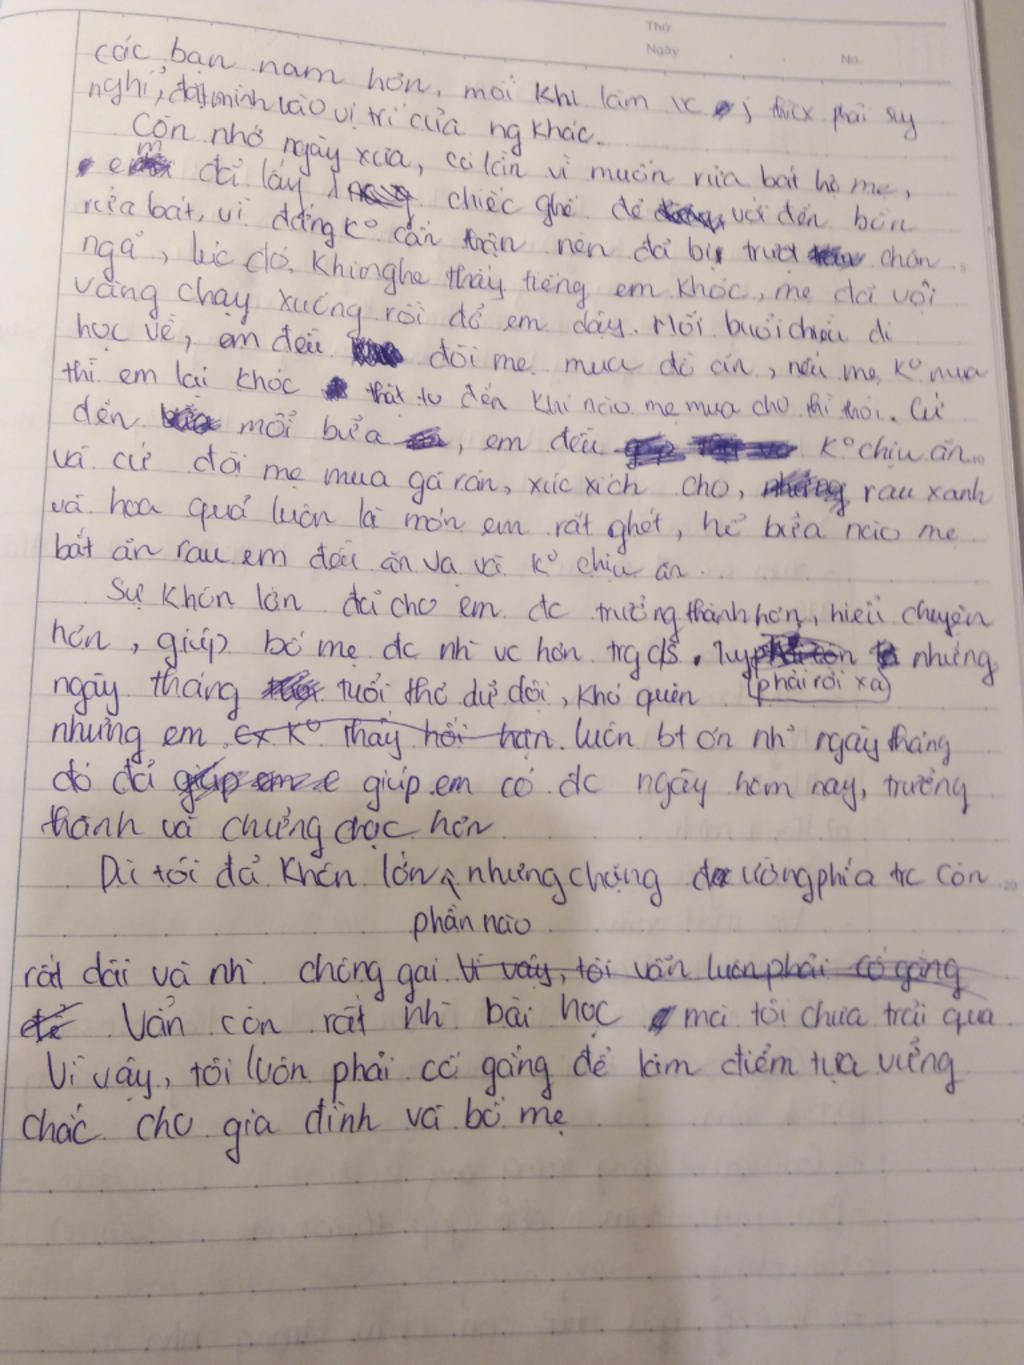 Thứ
Ngày
No.
các bạn nam hơn, mỗi khi làm vc j phải suy
nghĩ, đặt mình vào vị trí của ng khác.
Còn nhớ ngày xưa, có lần vì muốn rửa bát hộ mẹ,
em đã lấy 1 chiếc ghế để với đến bồn
rửa bát, vì đứng k° cẩn thận nên đã bị trượt chân
ngã, lúc đó. Khi nghe thấy tiếng em khóc, mẹ đã vội
vàng chạy xuống rồi đỡ em dậy. Mỗi buổi chiều đi
học về, em đều đòi mẹ mua đồ ăn, nếu mẹ k° mua
thì em lại khóc thật to đến khi nào mẹ mua cho thì thôi. Cứ
đến mỗi bữa, em đều k° chịu ăn
và cứ đòi mẹ mua gà rán, xúc xích cho, rau xanh
và hoa quả luôn là món em rất ghét, hễ bữa nào mẹ
bắt ăn rau em đều ăn vạ và k° chịu ăn.
Sự khôn lớn đã cho em đc trưởng thành hơn, hiểu chuyện
hơn, giúp bố mẹ đc nh` vc hơn trg c/s. Tuy những
(phải rời xa)
ngày tháng tuổi thơ dữ dội, khó quên
nhưng em luôn bt ơn nh~ ngày tháng
đó đã giúp em có đc ngày hôm nay, trưởng
thành và chững chạc hơn
Dù tôi đã khôn lớn, nhưng chặng đường phía trc còn
phần nào
rất dài và nh` chông gai. Vì vậy, tôi vẫn luôn phải cố gắng
để Vẫn còn rất nh` bài học mà tôi chưa trải qua
Vì vậy, tôi luôn phải cố gắng để làm điểm tựa vững
chắc cho gia đình và bố mẹ